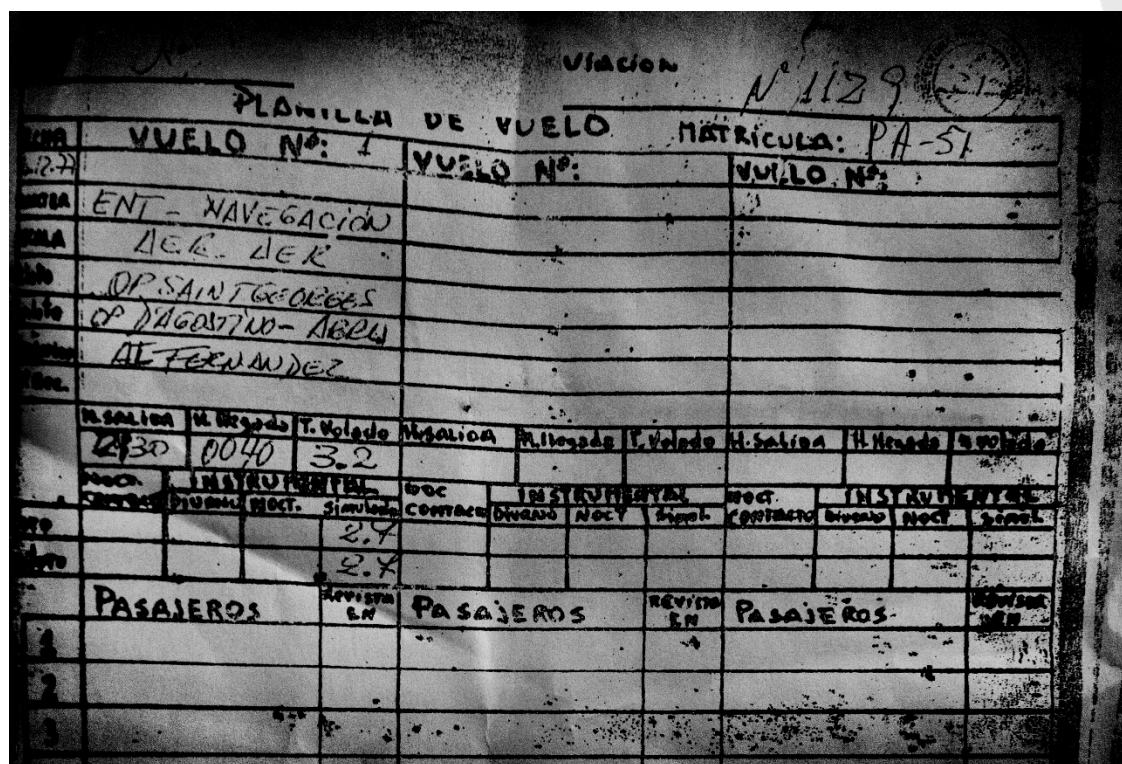 VIACION
Nº 1129
PLANILLA DE VUELO MATRICULA: PA-51
VUELO Nº: 1 VUELO Nº: VUELO Nº:
ENT - NAVEGACIÓN
AER. AER
OP. SAINT GEORGES
OP D'AGOSTINO - ABRU
AE FERNANDEZ
H.SALIDA H. llegada T. Volado H.SALIDA H.llegada T. Volado H.Salida H. llegada T. Volado
2130 0040 3.2
NOCT. INSTRUMENTAL NOC INSTRUMENTAL NOCT. INSTRUMENTAL
CONTACTO DIURNO NOCT. Simulado CONTACTO DIURNO NOCT Simul. CONTACTO Diurno NOCT Simul.
2.7
2.7
PASAJEROS REVISTA EN PASAJEROS REVISTA EN PASAJEROS REVISTA EN
1
2
3